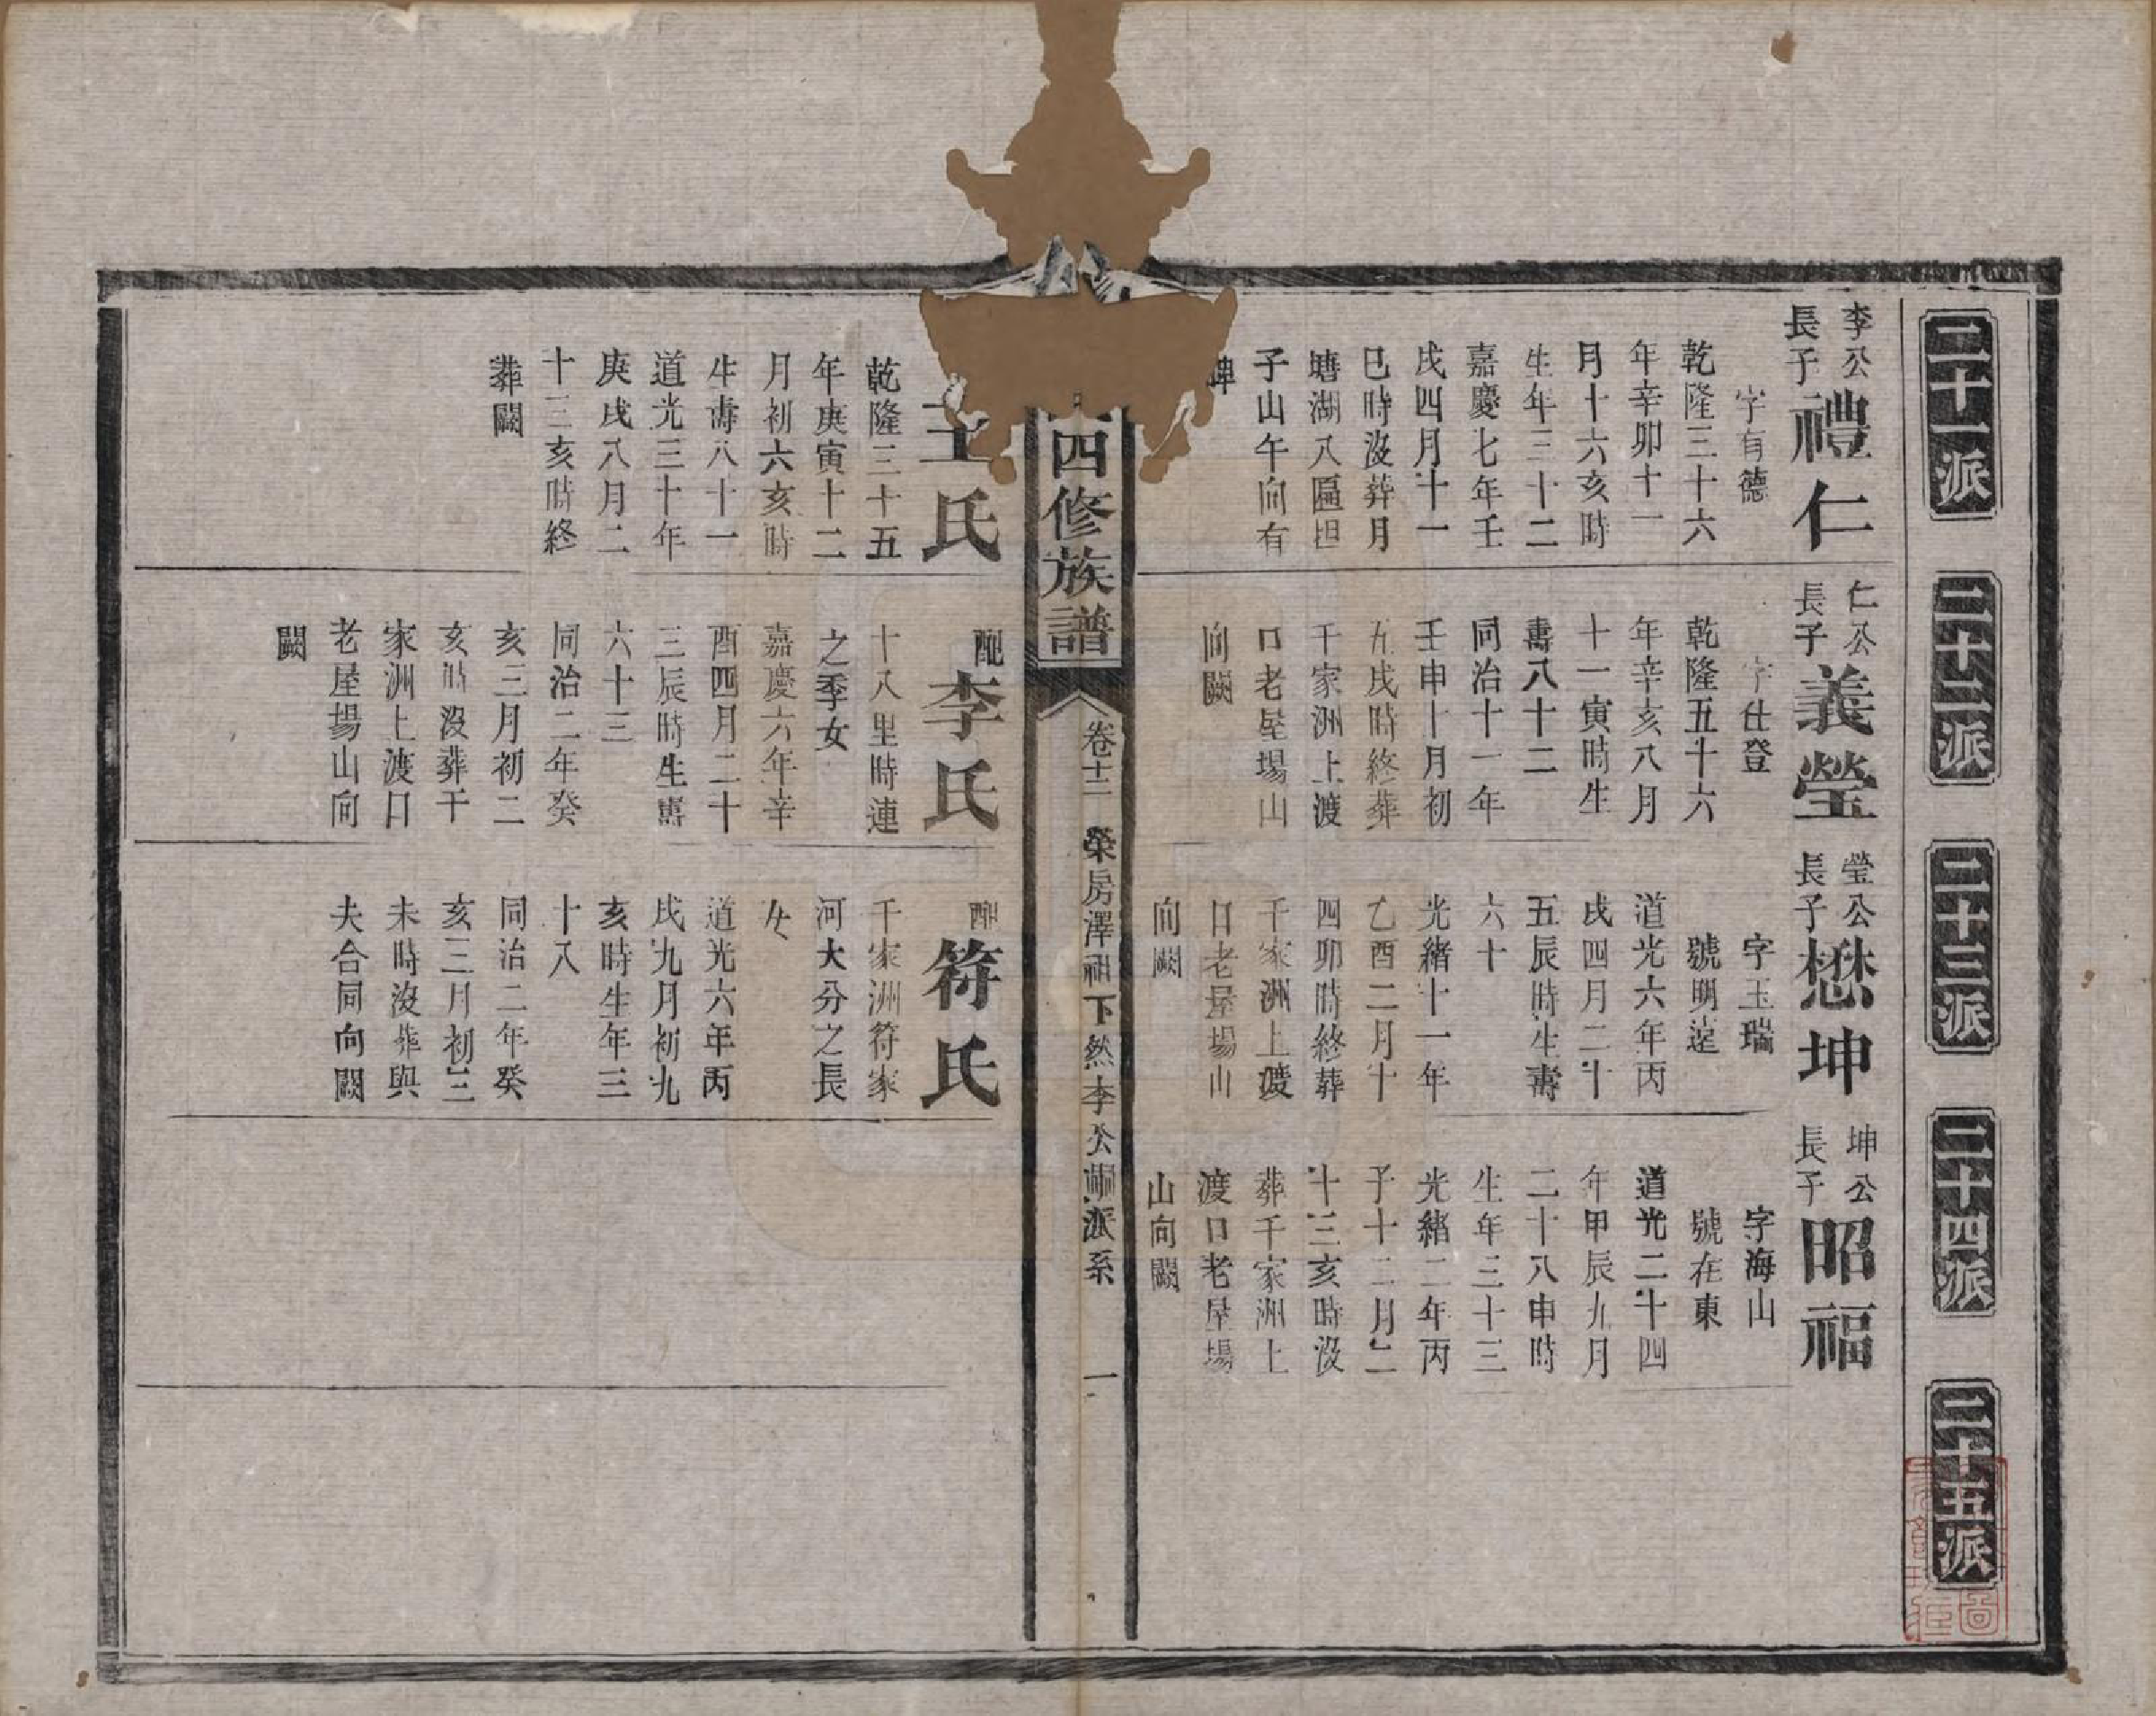 二十一派
二十二派
二十三派
二十四派
二十五派
李公
長子
禮仁
字有德
乾隆三十六
年辛卯十一
月十六亥時
生年三十二
嘉慶七年壬
戌四月十一
巳時没葬月
塘湖八區担
子山午向有
碑
仁公
長子
義瑩
字仕登
乾隆五十六
年辛亥八月
十一寅時生
壽八十二
同治十一年
壬申十月初
九戌時終葬
千家洲上渡
口老屋場山
向闕
瑩公
長子
懋坤
字玉瑞
號明遠
道光六年丙
戌四月二十
五辰時生壽
六十
光緒十一年
乙酉二月十
四卯時終葬
千家洲上渡
口老屋場山
向闕
坤公
長子
昭福
字海山
號在東
道光二十四
年甲辰九月
二十八申時
生年三十三
光緒二年丙
子十二月二
十三亥時没
葬千家洲上
渡口老屋場
山向闕
四修族譜
卷十二 榮房澤祖下然李公嗣派系 一
王氏
乾隆三十五
年庚寅十二
月初六亥時
生壽八十一
道光三十年
庚戌八月二
十三亥時終
葬闕
配
李氏
十八里時連
之季女
嘉慶六年辛
酉四月二十
三辰時生壽
六十三
同治二年癸
亥三月初二
亥時没葬千
家洲上渡口
老屋場山向
闕
配
符氏
千家洲符家
河大分之長
女
道光六年丙
戌九月初九
亥時生年三
十八
同治二年癸
亥三月初三
未時没葬與
夫合同向闕